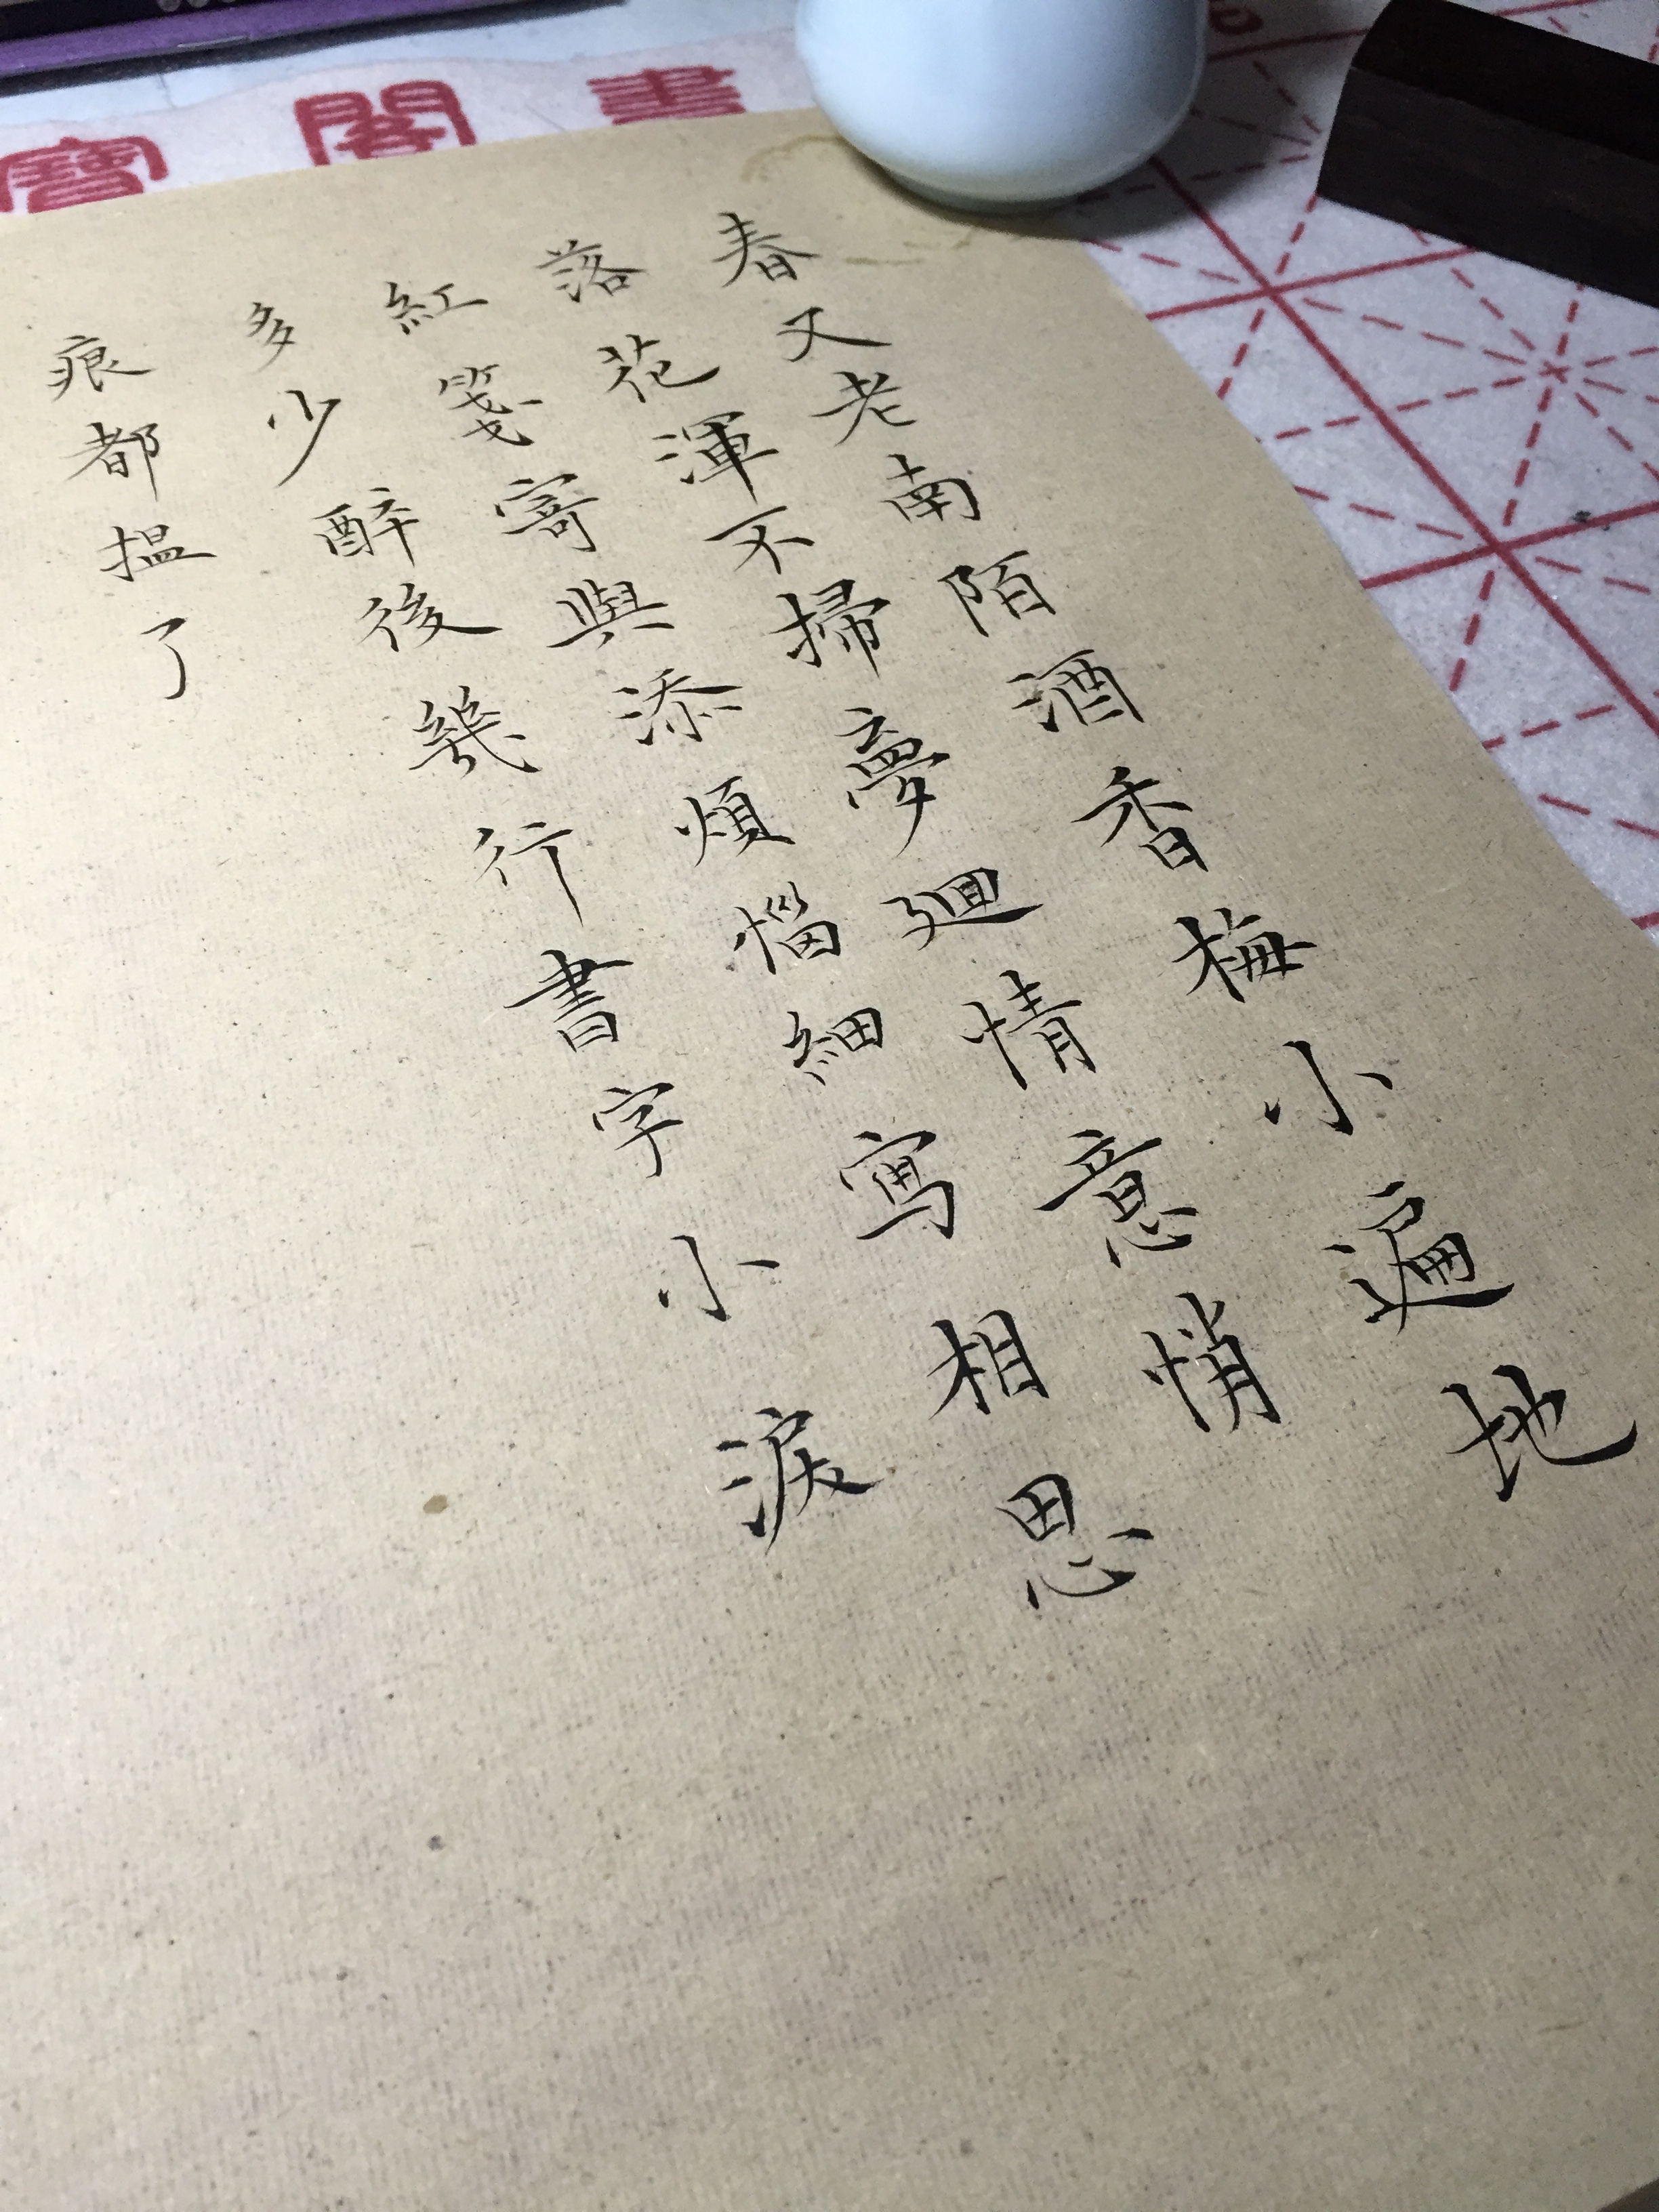 春又老南陌酒香梅小遍地
落花渾不掃夢廻情意悄
紅箋寄與添煩惱細寫相思
多少醉後幾行書字小淚
痕都搵了
寶閣書